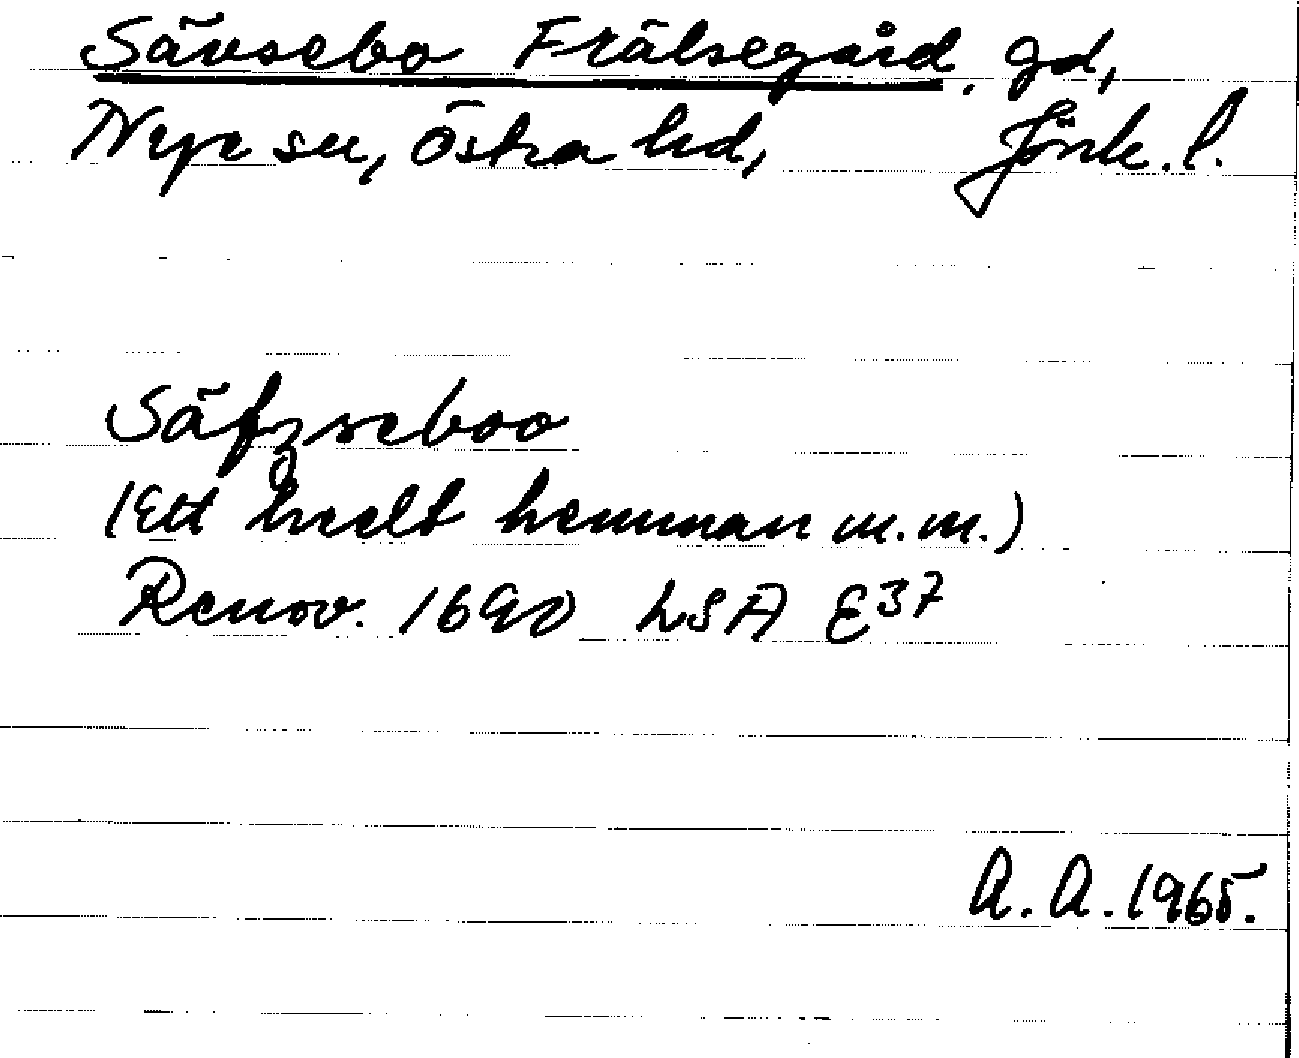 Sävsebo Frälsegård, gd,
Nye sn, Östra hd, Jönk. l.
Säfzseboo
(Ett heelt hemman m.m.)
Renov. 1690 LSA E37
A. A. 1965.